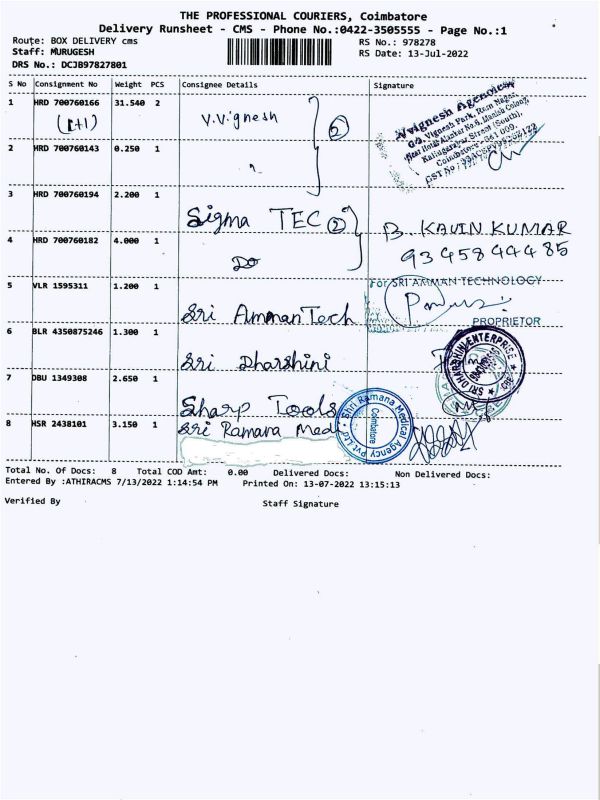 THE PROFESSIONAL COURIERS, Coimbatore
Delivery Runsheet - CMS - Phone No.:0422-3505555 - Page No.:1
Route: BOX DELIVERY cms
RS No.: 978278
Staff: MURUGESH
RS Date: 13-Jul-2022
DRS No.: DCJB97827801
S No Consignment No Weight PCS Consignee Details Signature
1 HRD 700760166 31.540 2 V.Vignesh
(1+1)
2
Vignesh Agencies
Vignesh Park, Ram Nagar,
Coimbatore - 641 009.
2 HRD 700760143 0.250 1 "
3 HRD 700760194 2.200 1 Sigma TEC 2 B. KAVIN KUMAR
4 HRD 700760182 4.000 1 Do 9345844485
5 VLR 1595311 1.200 1 For SRI AMMAN TECHNOLOGY
Sri AmmanTech PROPRIETOR
6 BLR 4350875246 1.300 1 Sri Dharshini
SRI DHARSHINI ENTERPRISE
7 DBU 1349308 2.650 1 Sharp Tools
8 HSR 2438101 3.150 1 Sri Ramana Med
Shri Ramana Medical Agency Pvt Ltd
Coimbatore
Total No. Of Docs: 8 Total COD Amt: 0.00 Delivered Docs: Non Delivered Docs:
Entered By :ATHIRACMS 7/13/2022 1:14:54 PM Printed On: 13-07-2022 13:15:13
Verified By Staff Signature